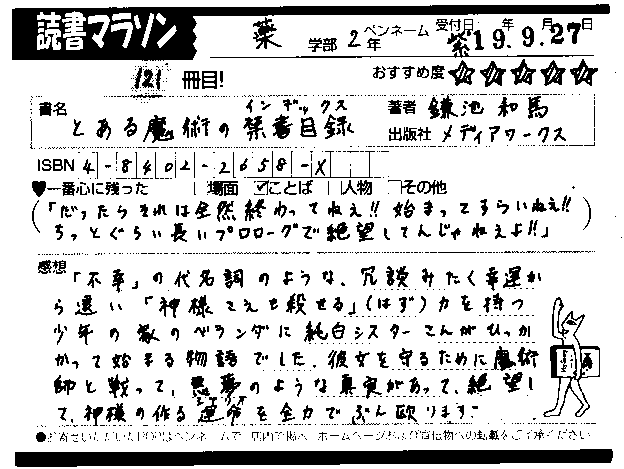 読書マラソン
薬 学部 2年 ペンネーム 紫 受付日 19年9月27日
121 冊目!
おすすめ度 ★★★★★
書名 とある魔術の禁書目録
インデックス
著者 鎌池和馬
出版社 メディアワークス
ISBN 4-8402-2658-X
♥一番心に残った □場面 ☑ことば □人物 □その他
(「だったらそれは全然終わってねえ!! 始まってすらいねえ!!
ちっとぐらい長いプロローグで絶望してんじゃねえよ!!」)
感想
「不幸」の代名詞のような、冗談みたく幸運か
ら遠い「神様さえも殺せる」(はず)力を持つ
少年の家のベランダに純白シスターさんがひっか
かって始まる物語でした。彼女を守るために魔術
師と戦って、悪夢のような真実があって、絶望し
て、神様の作る運命を全力でぶん殴ります。
●お寄せいただいたPOPはペンネームで、店内で掲示、ホームページおよび宣伝物への転載をご了承ください